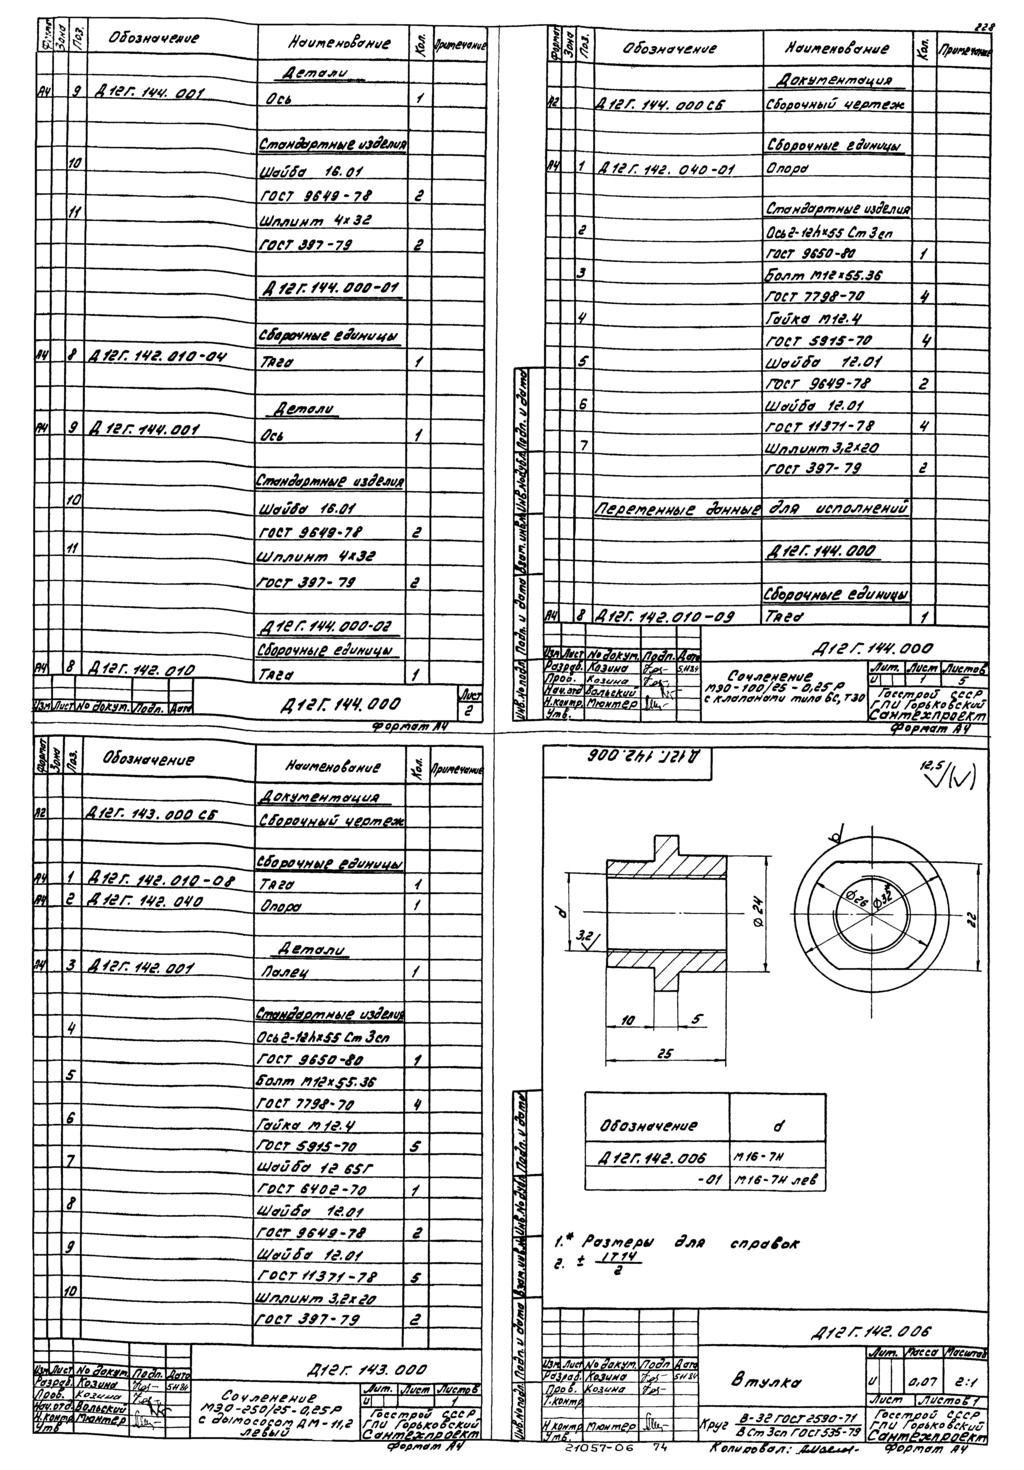 228
Формат Зона Поз. Обозначение Наименование Кол. Примечание
Детали
А4 9 Д12Г.144.001 Ось 1
Стандартные изделия
10 Шайба 16.01
ГОСТ 9649-78 2
11 Шплинт 4х32
ГОСТ 397-79 2
Д12Г.144.000-01
Сборочные единицы
А4 8 Д12Г.142.010-04 Тяга 1
Детали
А4 9 Д12Г.144.001 Ось 1
Стандартные изделия
10 Шайба 16.01
ГОСТ 9649-78 2
11 Шплинт 4х32
ГОСТ 397-79 2
Д12Г.144.000-02
Сборочные единицы
А4 8 Д12Г.142.010 Тяга 1
Изм Лист № докум. Подп. Дата
Д12Г.144.000
Лист
2
Формат А4
Формат Зона Поз. Обозначение Наименование Кол. Примечание
Документация
А2 Д12Г.144.000 СБ Сборочный чертеж
Сборочные единицы
А4 1 Д12Г.142.040-01 Опора
Стандартные изделия
2 Ось 2-12h х55 Ст 3сп
ГОСТ 9650-80 1
3 Болт М12х55.36
ГОСТ 7798-70 4
4 Гайка М12.4
ГОСТ 5915-70 4
5 Шайба 12.01
ГОСТ 9649-78 2
6 Шайба 12.01
ГОСТ 11371-78 4
7 Шплинт 3,2х20
ГОСТ 397-79 2
Переменные данные для исполнений
Д12Г.144.000
Сборочные единицы
А4 8 Д12Г.142.010-09 Тяга 1
Инв.№ подл. Подп. и дата Взам.инв.№ Инв.№ дубл. Подп. и дата
Изм Лист № докум. Подп. Дата
Разраб. Козина
Пров. Козина
Нач.отд Вольский
Н.контр. Мюнтер
Утв.
Д12Г.144.000
Сочленение
МЭО-100/25-0,25Р
с клапанами типа 6с, Т30
Лит. Лист Листов
И 1 5
Госстрой СССР
ГПИ Горьковский
Сантехпроект
Формат А4
Формат Зона Поз. Обозначение Наименование Кол. Примечание
Документация
А2 Д12Г.143.000 СБ Сборочный чертеж
Сборочные единицы
А4 1 Д12Г.142.010-08 Тяга 1
А4 2 Д12Г.142.040 Опора 1
Детали
А4 3 Д12Г.142.001 Палец 1
Стандартные изделия
4 Ось 2-12h х55 Ст 3сп
ГОСТ 9650-80 1
5 Болт М12х55.36
ГОСТ 7798-70 4
6 Гайка М12.4
ГОСТ 5915-70 5
7 Шайба 12 65Г
ГОСТ 6402-70 1
8 Шайба 12.01
ГОСТ 9649-78 2
9 Шайба 12.01
ГОСТ 11371-78 5
10 Шплинт 3,2х20
ГОСТ 397-79 2
Изм Лист № докум. Подп. Дата
Разраб. Козина
Пров. Козина
Нач.отд Вольский
Н.контр Мюнтер
Утв
Д12Г.143.000
Сочленение
МЭО-250/25-0,25Р
с дымососом ДМ-11,2
левый
Лит. Лист Листов
И 1
Госстрой СССР
ГПИ Горьковский
Сантехпроект
Формат А4
Д12Г.142.006
12,5
d
3,2
⌀24
⌀26
⌀32*
22
10 5
25
Обозначение d
Д12Г.142.006 М16-7Н
-01 М16-7Н лев
1.* Размеры для справок
2. ± IT14/2
Инв.№ подл. Подп. и дата Взам.инв.№ Инв.№ дубл. Подп. и дата
Изм Лист № докум. Подп Дата
Разраб. Козина
Пров. Козина
Т.контр
Н.контр Мюнтер
Утв.
Д12Г.142.006
Втулка
Лит. Масса Масштаб
И 0,07 2:1
Лист Листов 1
Круг В-32 ГОСТ 2590-71
ВСт 3сп ГОСТ 535-79
Госстрой СССР
ГПИ Горьковский
Сантехпроект
21057-06 74 Копировал: Формат А4